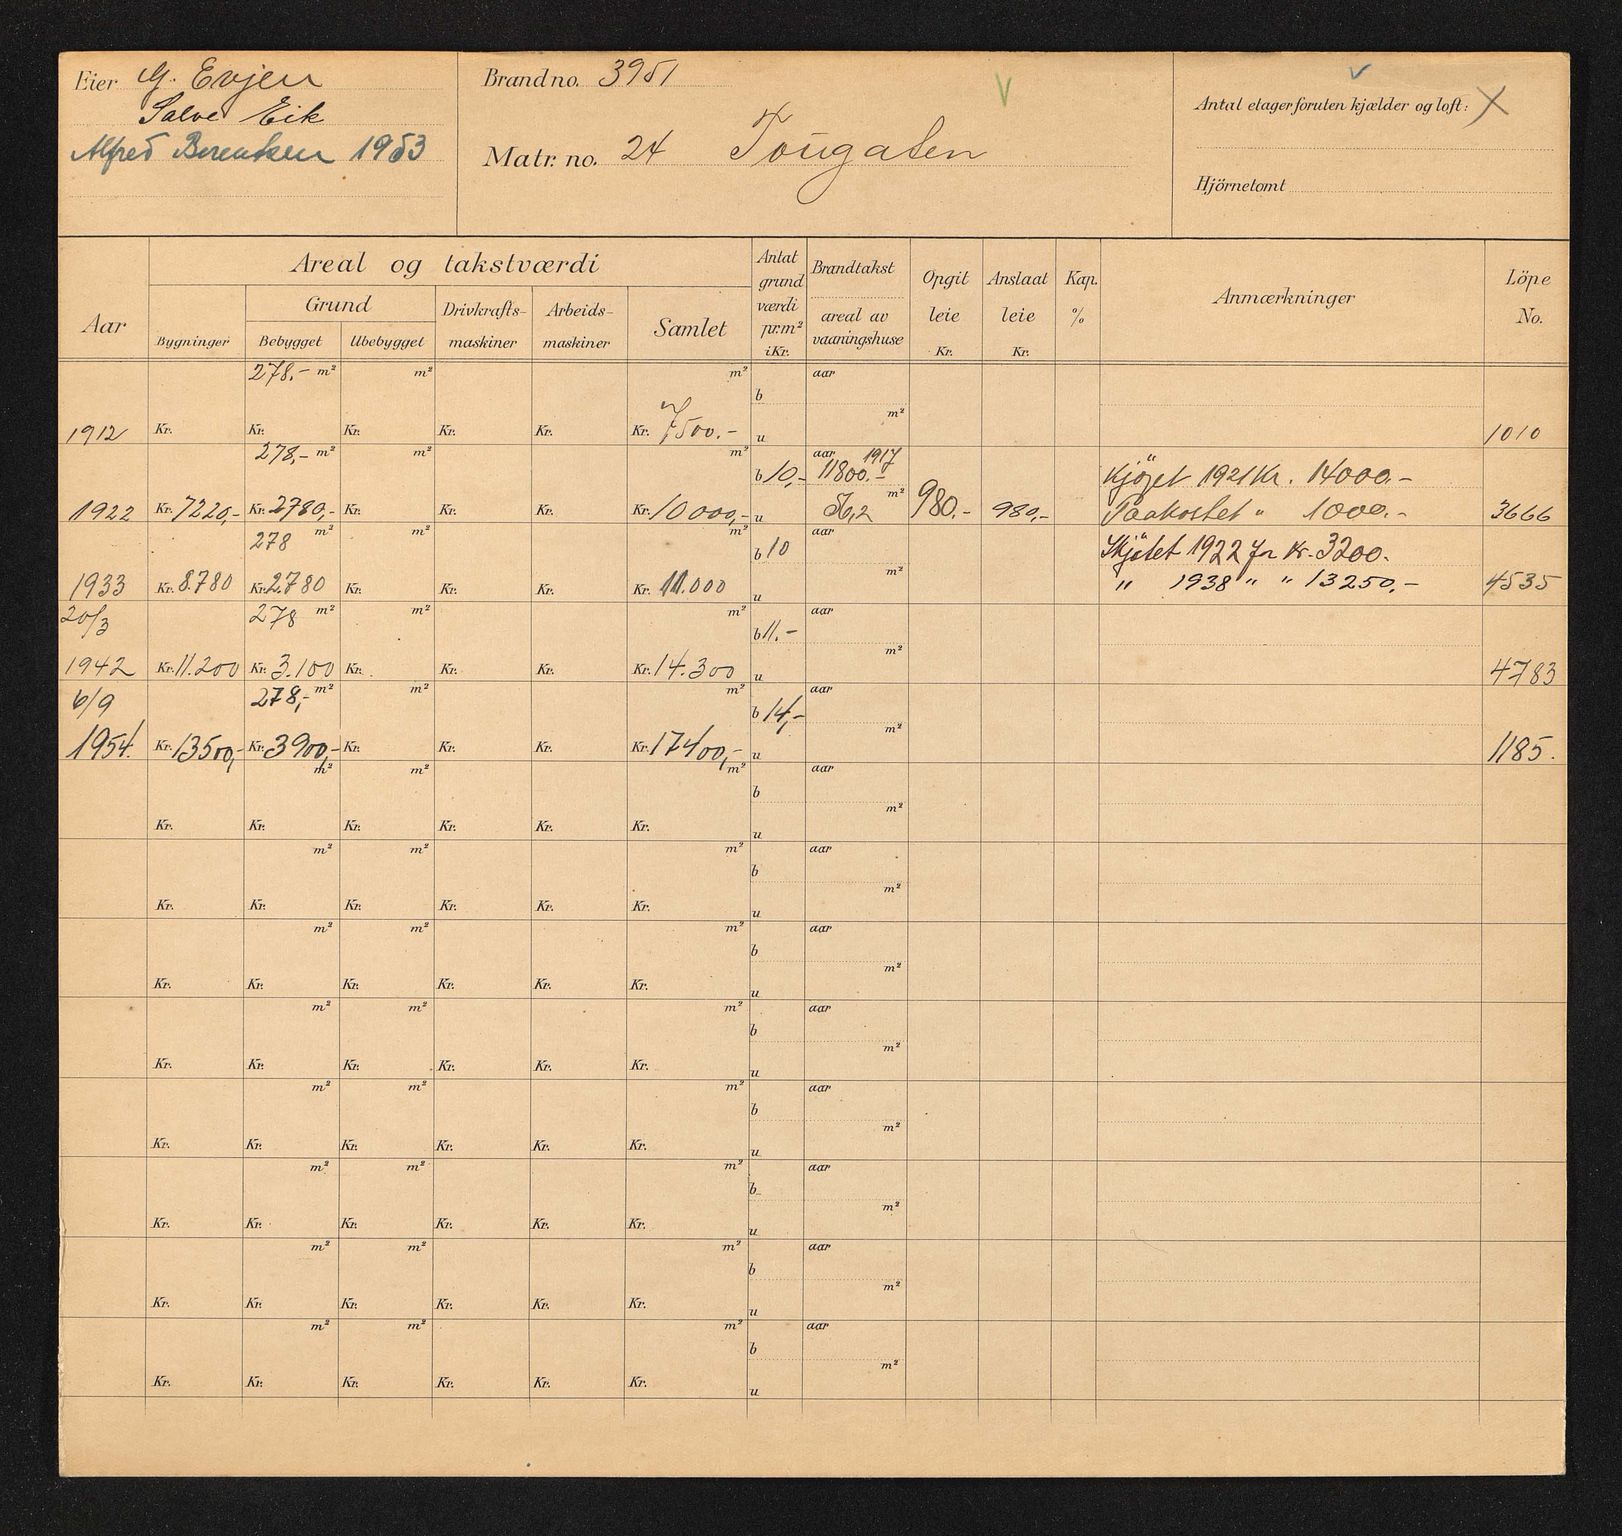 Eier G. Evjen
Salve Eik
Alfred Berentsen 1953
Brandno. 3951
Matr. no. 24 Tougaten
Antal etager foruten kjælder og loft: X
Hjörnetomt
Aar
Areal og takstværdi
Bygninger
Grund
Bebygget Ubebygget
Drivkrafts-maskiner
Arbeids-maskiner
Samlet
Antat grund værdi pr. m² i Kr.
Brandtakst
areal av vaaningshuse
Opgit leie Kr.
Anslaat leie Kr.
Kap. %
Anmærkninger
Löpe No.
278.- m² m² m² b aar m²
1912 Kr. Kr. Kr. Kr. Kr. Kr. 7500.- u 1010
278,- m² m² m² b 10,- aar 1917 11800.- m² Kjöpet 1921 Kr. 14000.-
1922 Kr. 7220,- Kr. 2780,- Kr. Kr. Kr. Kr. 10000,- u 56,2 980.- 980,- Paakostet " 1000.- 3666
278 m² m² m² b 10 aar m² Skjötet 1922 for Kr. 3200.
1933 Kr. 8.780 Kr. 2.780 Kr. Kr. Kr. Kr. 11.000 u " 1938 " " 13250,- 4535
20/3 278 m² m² m² b 11.- aar m²
1942 Kr. 11.200 Kr. 3.100 Kr. Kr. Kr. Kr. 14.300 u 4783
6/9 278,- m² m² m² b 14,- aar m²
1954. Kr. 13500,- Kr. 3900,- Kr. Kr. Kr. Kr. 17400,- u 1185.
m² m² m² b aar m²
Kr. Kr. Kr. Kr. Kr. Kr. u
m² m² m² b aar m²
Kr. Kr. Kr. Kr. Kr. Kr. u
m² m² m² b aar m²
Kr. Kr. Kr. Kr. Kr. Kr. u
m² m² m² b aar m²
Kr. Kr. Kr. Kr. Kr. Kr. u
m² m² m² b aar m²
Kr. Kr. Kr. Kr. Kr. Kr. u
m² m² m² b aar m²
Kr. Kr. Kr. Kr. Kr. Kr. u
m² m² m² b aar m²
Kr. Kr. Kr. Kr. Kr. Kr. u
m² m² m² b aar m²
Kr. Kr. Kr. Kr. Kr. Kr. u